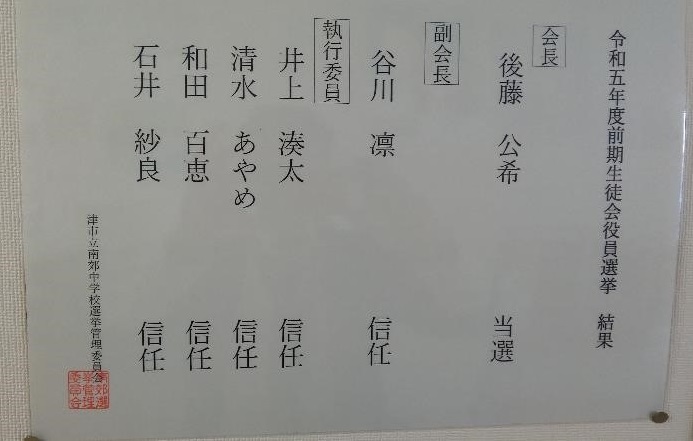 令和五年度前期生徒会役員選挙 結果
会長
後藤 公希 当選
副会長
谷川 凛 信任
執行委員
井上 湊太 信任
清水 あやめ 信任
和田 百恵 信任
石井 紗良 信任
津市立南郊中学校選挙管理委員会
南郊選
挙管理
委員会